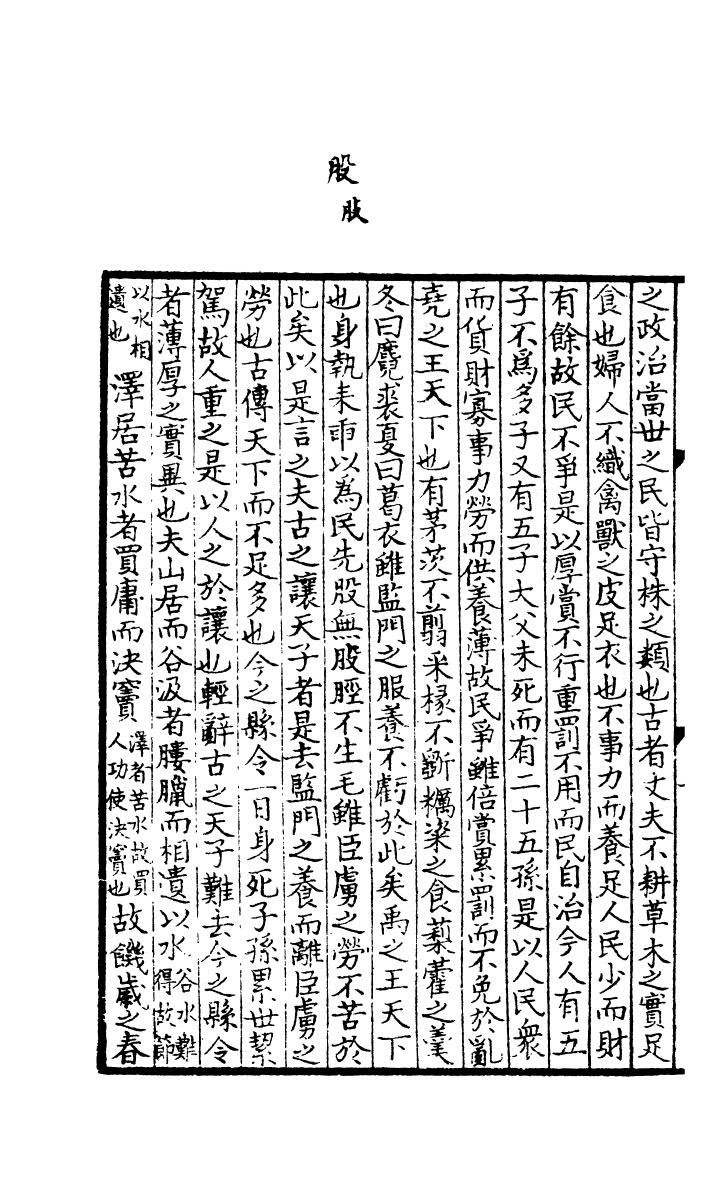 股
肢
之政治當世之民皆守株之類也古者丈夫不耕草木之實足
食也婦人不織禽獸之皮足衣也不事力而養足人民少而財
有餘故民不爭是以厚賞不行重罰不用而民自治今人有五
子不為多子又有五子大父未死而有二十五孫是以人民衆
而貨財寡事力勞而供養薄故民爭雖倍賞累罰而不免於亂
堯之王天下也有茅茨不翦采椽不斲糲粢之食藜藿之羹
冬曰麑裘夏曰葛衣雖監門之服養不虧於此矣禹之王天下
也身執耒臿以為民先股無股脛不生毛雖臣虜之勞不苦於
此矣以是言之夫古之讓天子者是去監門之養而離臣虜之
勞也古傳天下而不足多也今之縣令一日身死子孫累世絜
駕故人重之是以人之於讓也輕辭古之天子難去今之縣令
者薄厚之實異也夫山居而谷汲者膢臘而相遺以水谷水難得故節
以水相遺也澤居苦水者買庸而決竇澤者苦水故買人功使決竇也故饑歲之春